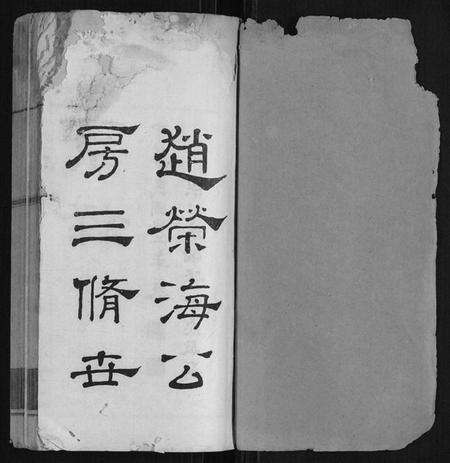 趙榮海公
房三脩世